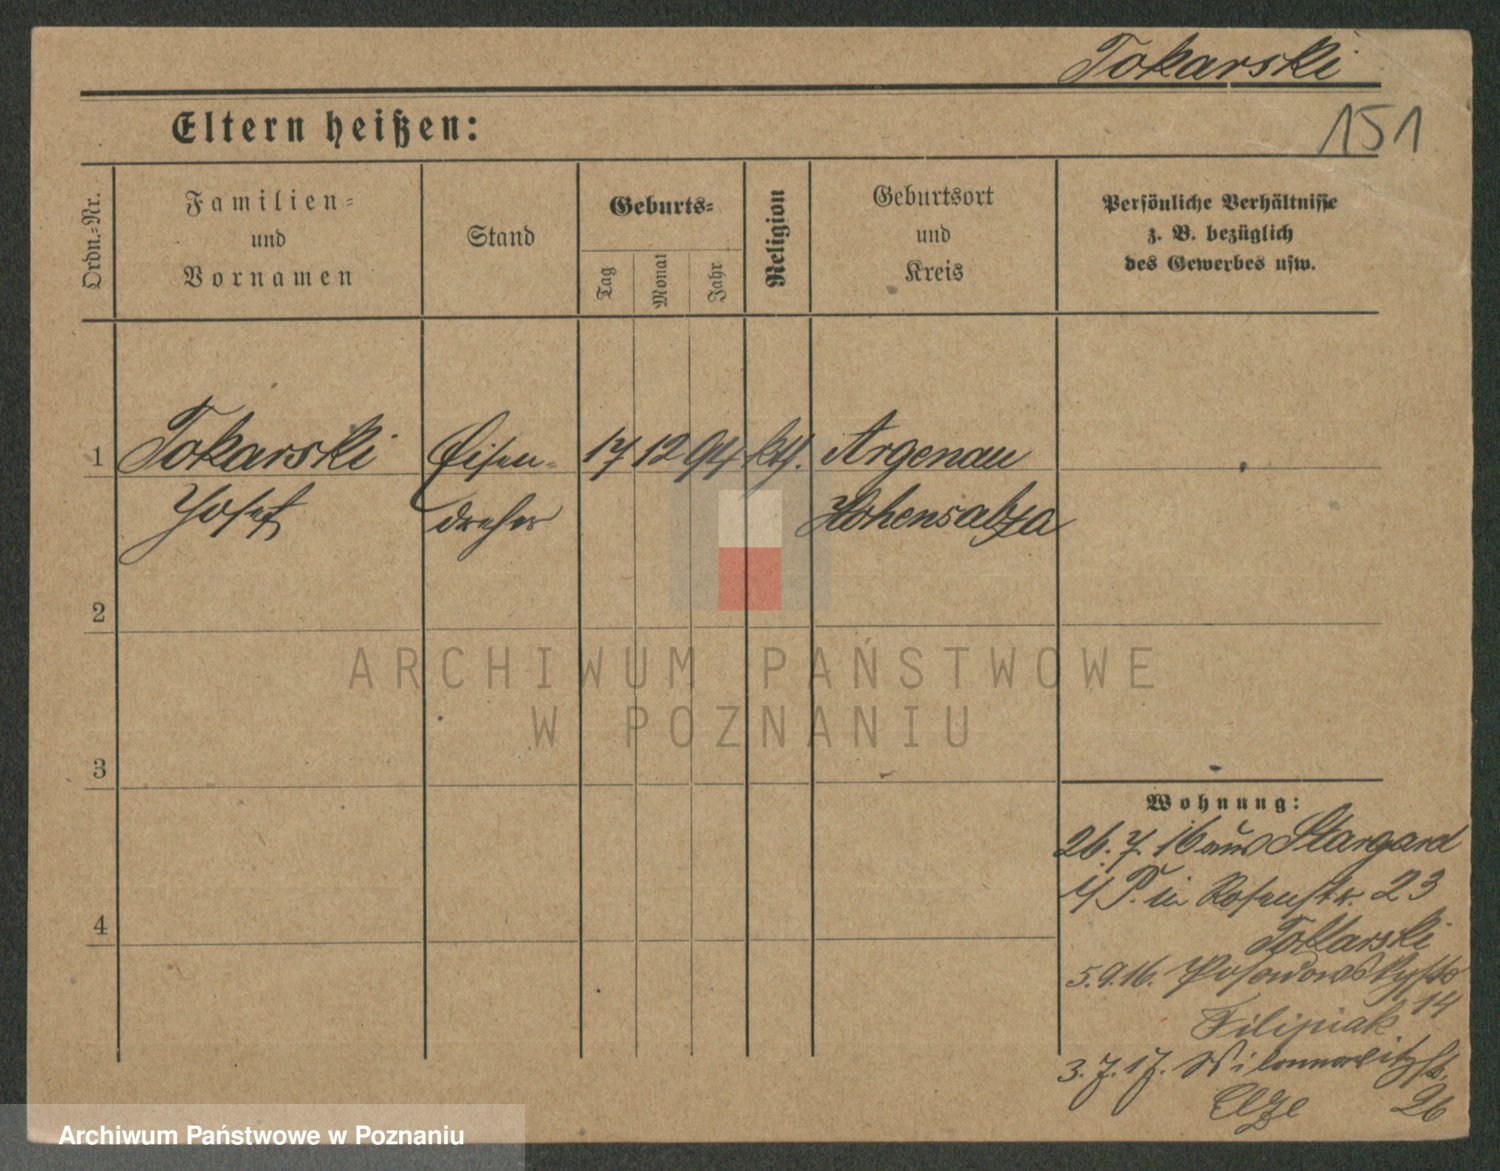 Tokarski
151
Eltern heißen:
Ordn.-Nr.
Familien-
und
Vornamen
Stand
Geburts-
Tag
Monat
Jahr
Religion
Geburtsort
und
Kreis
Persönliche Verhältnisse
z. B. bezüglich
des Gewerbes usw.
1 Tokarski Eisen- 17 12 94 kth. Argenau
Josef dreher Hohensalza
2
3
4
Wohnung:
26. 7. 16 aus Stargard
i/P. in Rosenstr. 23
Tokarski
5.9.16. Posadowskystr
14
Filipiak
3. 7. 17.
26
ARCHIWUM PAŃSTWOWE
W POZNANIU
Archiwum Państwowe w Poznaniu